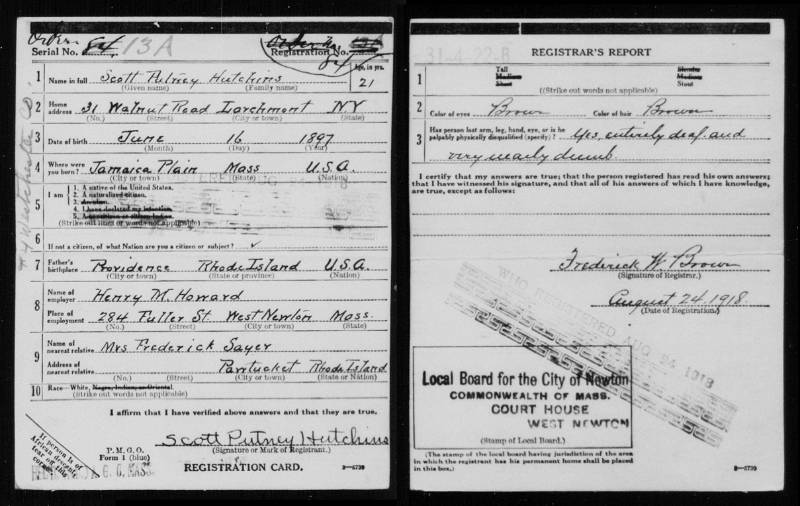 Order 84 13A Order No. 84
Serial No. Registration No.
1 Name in full Scott Putney Hutchins Age, in yrs. 21
(Given name) (Family name)
2 Home address 31 Walnut Road Larchmont NY
(No.) (Street) (City or town) (State)
3 Date of birth June 16 1897
(Month) (Day) (Year)
4 Where were you born? Jamaica Plain Mass U.S.A.
(City or town) (State) (Nation)
5 I am 1. A native of the United States.
2. A naturalized citizen.
3. An alien.
4. I have declared my intention.
5. A noncitizen or citizen Indian.
(Strike out lines or words not applicable)
6 If not a citizen, of what Nation are you a citizen or subject? ✓
7 Father's birthplace Providence Rhode Island U.S.A.
(City or town) (State or province) (Nation)
8 Name of employer Henry M. Howard
Place of employment 284 Fuller St. West Newton Mass.
(No.) (Street) (City or town) (State)
9 Name of nearest relative Mrs Frederick Sayer
Address of nearest relative Pawtucket Rhode Island
(No.) (Street) (City or town) (State or Nation)
10 Race—White, Negro, Indian, or Oriental.
(Strike out words not applicable)
I affirm that I have verified above answers and that they are true.
Scott Putney Hutchins
P. M. G. O. (Signature or Mark of Registrant.)
Form 1 (blue)
REGISTRATION CARD. 3—5739
If person is of
African descent,
tear off this
corner.
31-4-22-B REGISTRAR'S REPORT
1 Tall Slender
Medium Medium
Short Stout
(Strike out words not applicable)
2 Color of eyes Brown Color of hair Brown
3 Has person lost arm, leg, hand, eye, or is he
palpably physically disqualified (specify)? Yes, entirely deaf and
very nearly dumb.
I certify that my answers are true; that the person registered has read his own answers;
that I have witnessed his signature, and that all of his answers of which I have knowledge,
are true, except as follows:
Frederick W. Brown
(Signature of Registrar.)
August 24, 1918
(Date of Registration)
Local Board for the City of Newton
COMMONWEALTH OF MASS.
COURT HOUSE
WEST NEWTON
(Stamp of Local Board.)
(The stamp of the local board having jurisdiction of the area
in which the registrant has his permanent home shall be placed
in this box.) 3—5739